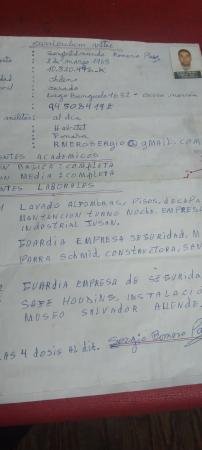 curriculum vitae
: Sergio Fernando Romero
: 2 de marzo 1965
: chileno
: casado
: Lago Banguelo 1632 -
: 99508419
militar : al dia
: Habitat
: Fonasa
: RMEROSERGIO@gmail.com
NTES ACADEMICOS
N BASICA : completa
N MEDIA : completa
NTES LABORALES
LAVADO ALFOMBRAS, PISOS, DECAPA
MANTANCION TURNO NOCHE. EMPRESA
INDUSTRIAL SUSAN.
GUARDIA EMPRESA SEGURIDAD. M
PARRA SCHMID, CONSTRUCTORA, SAN
GUARDIA EMPRESA DE SEGURIDA
SAFE HOLDING, INSTALACIO
MUSEO SALVADOR ALLENDE,
LAS 4 DOSIS AL DIA. Sergio Romero